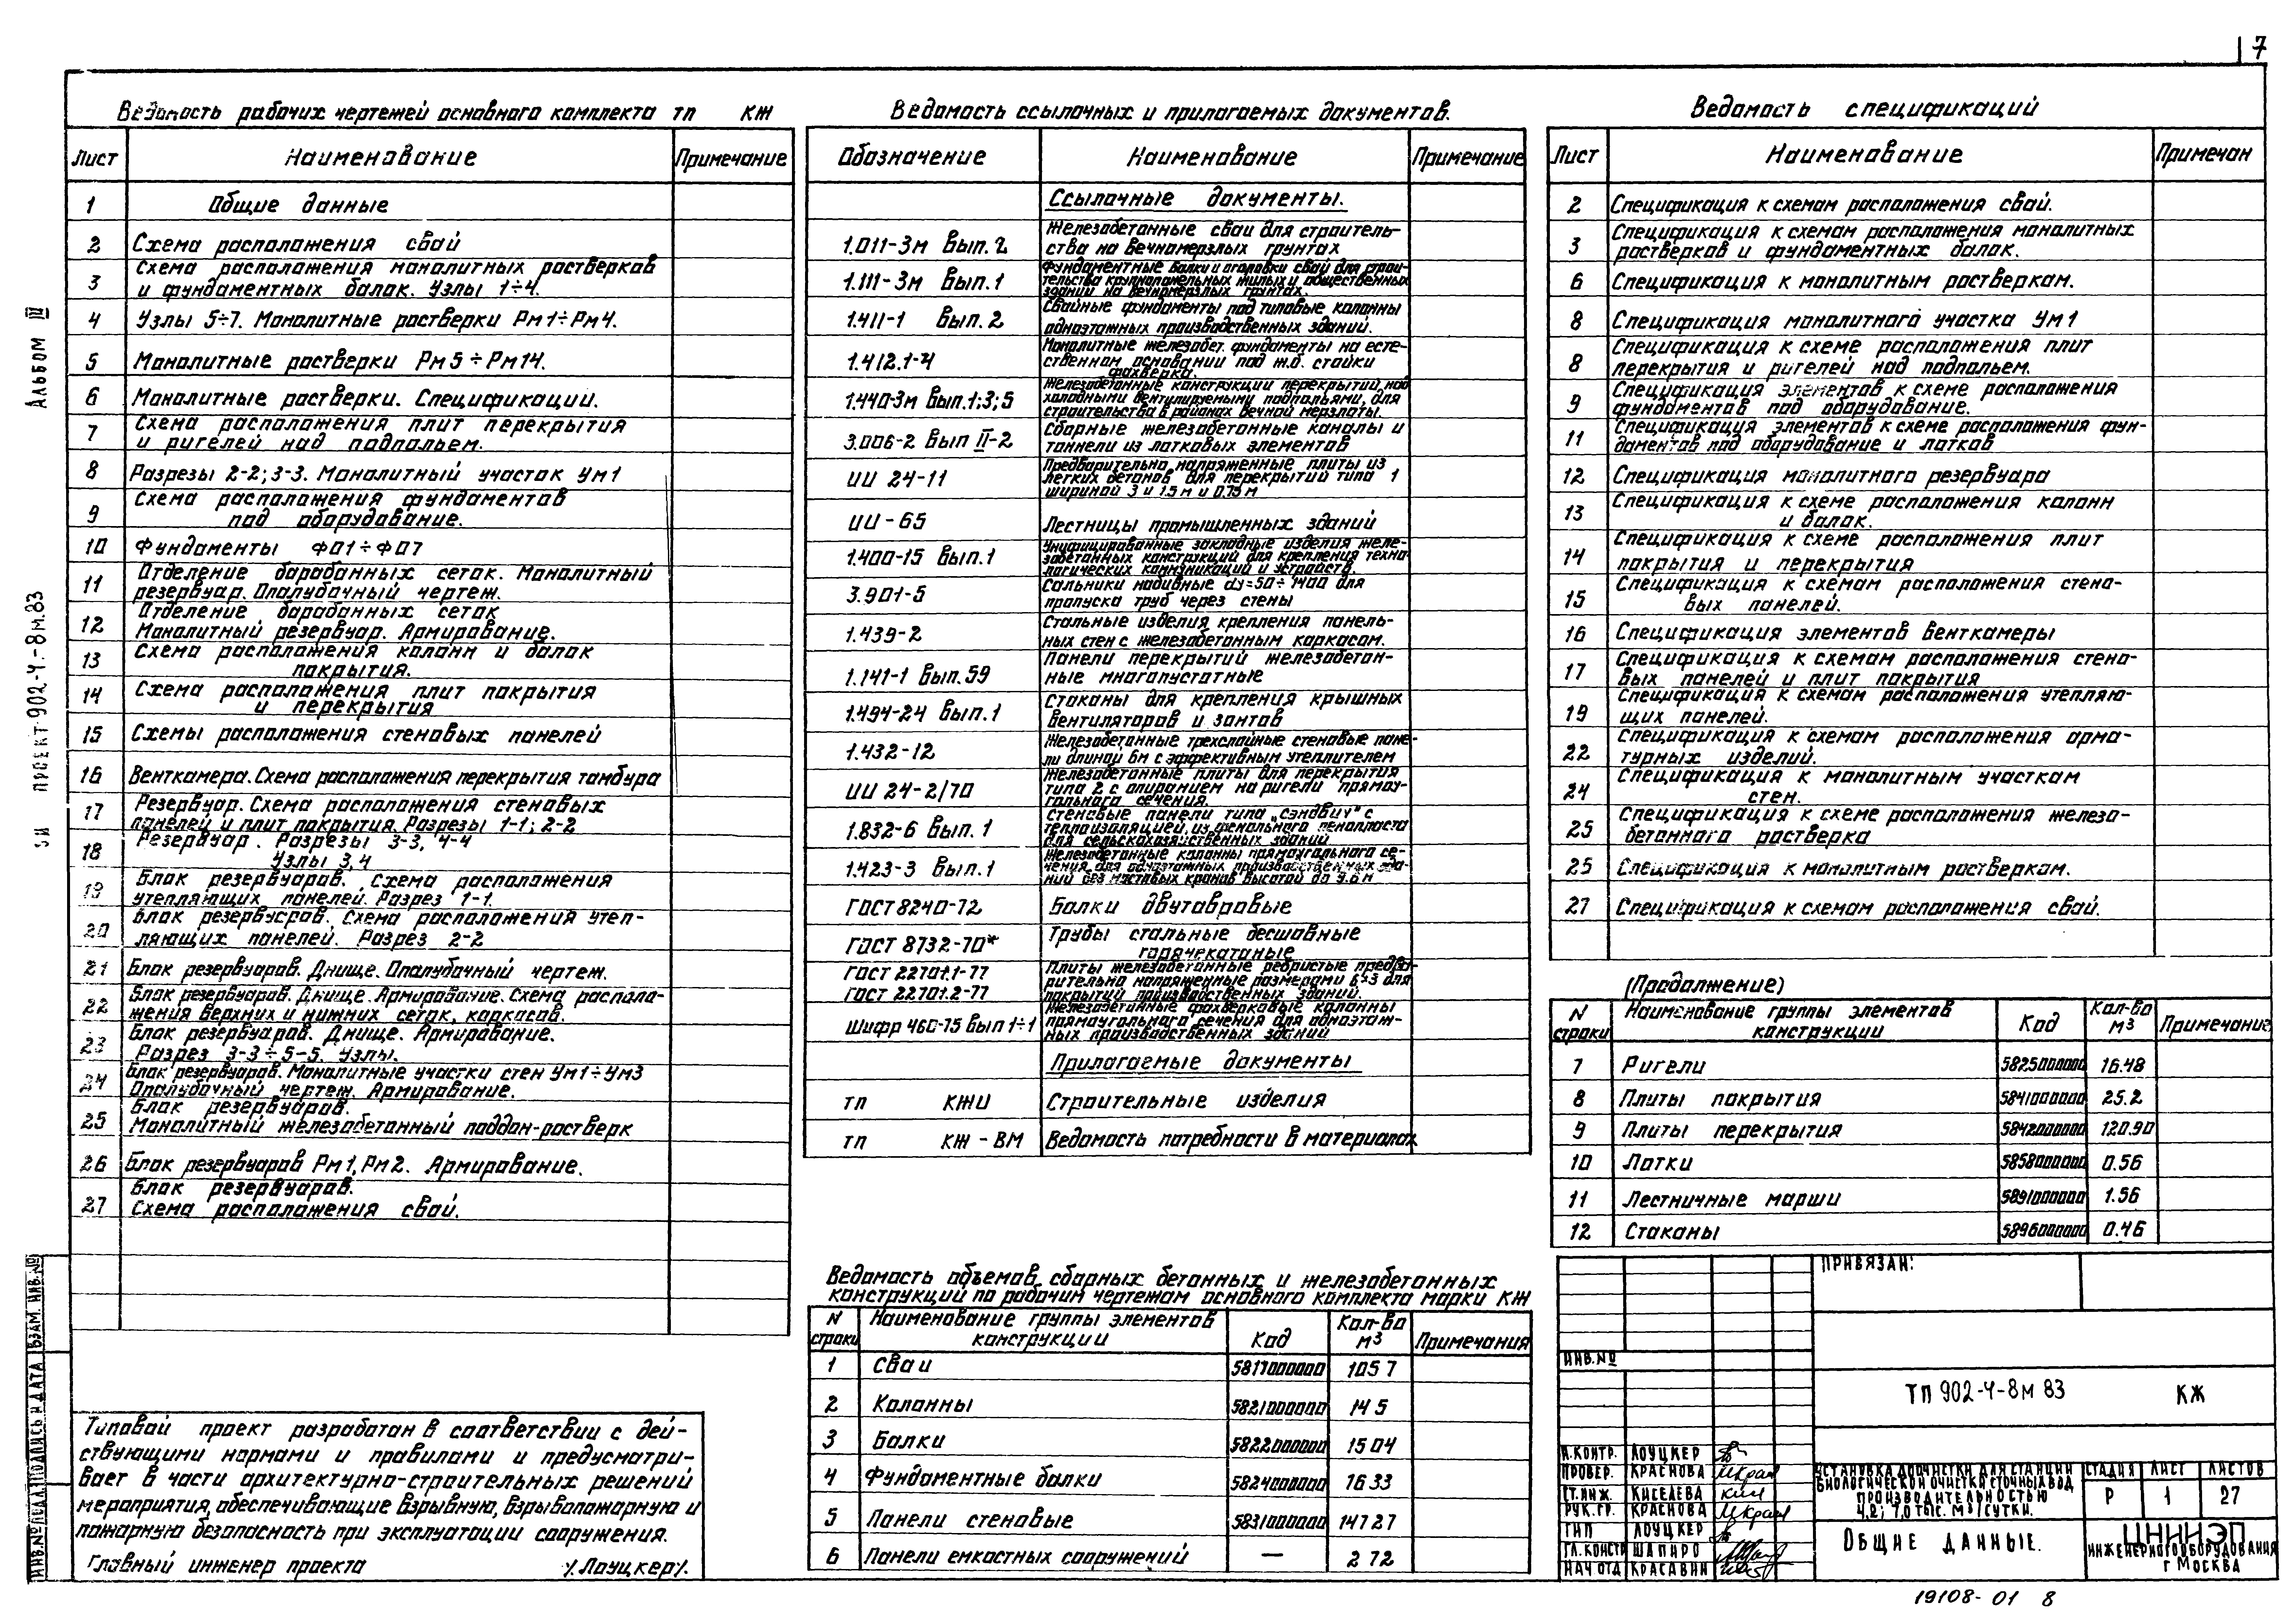 7
Альбом III
проект 902-4-8м.83
Ведомость рабочих чертежей основного комплекта тп КЖ
Лист Наименование Примечание
1 Общие данные
2 Схема расположения свай
3 Схема расположения монолитных ростверков
и фундаментных балок. Узлы 1÷4.
4 Узлы 5÷7. Монолитные ростверки Рм1÷Рм4.
5 Монолитные ростверки Рм5÷Рм14.
6 Монолитные ростверки. Спецификации.
7 Схема расположения плит перекрытия
и ригелей над подпольем.
8 Разрезы 2-2; 3-3. Монолитный участок Ум1
9 Схема расположения фундаментов
под оборудование.
10 Фундаменты ФО1÷ФО7
11 Отделение барабанных сеток. Монолитный
резервуар. Опалубочный чертеж.
12 Отделение барабанных сеток
Монолитный резервуар. Армирование.
13 Схема расположения колонн и балок
покрытия.
14 Схема расположения плит покрытия
и перекрытия
15 Схемы расположения стеновых панелей
16 Венткамера. Схема расположения перекрытия тамбура
17 Резервуар. Схема расположения стеновых
панелей и плит покрытия. Разрезы 1-1; 2-2
18 Резервуар. Разрезы 3-3, 4-4
Узлы 3,4
19 Блок резервуаров. Схема расположения
утепляющих панелей. Разрез 1-1.
20 Блок резервуаров. Схема расположения утеп-
ляющих панелей. Разрез 2-2
21 Блок резервуаров. Днище. Опалубочный чертеж.
22 Блок резервуаров. Днище. Армирование. Схема располо-
жения верхних и нижних сеток, каркасов.
23 Блок резервуаров. Днище. Армирование.
Разрез 3-3÷5-5. Узлы.
24 Блок резервуаров. Монолитные участки стен Ум1÷Ум3
Опалубочный чертеж. Армирование.
25 Блок резервуаров.
Монолитный железобетонный поддон-ростверк
26 Блок резервуаров Рм1, Рм2. Армирование.
27 Блок резервуаров.
Схема расположения свай.
Типовой проект разработан в соответствии с дей-
ствующими нормами и правилами и предусматри-
вает в части архитектурно-строительных решений
мероприятия, обеспечивающие взрывную, взрывопожарную и
пожарную безопасность при эксплуатации сооружения.
Главный инженер проекта /Лоуцкер/.
Ведомость ссылочных и прилагаемых документов.
Обозначение Наименование Примечание
Ссылочные документы.
1.011-3м Вып. 2 Железобетонные сваи для строитель-
ства на вечномерзлых грунтах
1.111-3м Вып. 1 Фундаментные балки и оголовки свай для строи-
тельства крупнопанельных жилых и общественных
зданий на вечномерзлых грунтах.
1.411-1 Вып. 2 Свайные фундаменты под типовые колонны
одноэтажных производственных зданий.
1.412.1-4 Монолитные железобет. фундаменты на есте-
ственном основании под ж.б. стойки
фахверка.
1.440-3м Вып.1;3;5 Железобетонные конструкции перекрытий над
холодными вентилируемыми подпольями, для
строительства в районах вечной мерзлоты.
3.006-2 Вып II-2 Сборные железобетонные каналы и
тоннели из лотковых элементов
ИИ 24-11 Предварительно напряженные плиты из
легких бетонов для перекрытий типа 1
шириной 3 и 1.5м и 0.75м
ИИ-65 Лестницы промышленных зданий
1.400-15 Вып.1 Унифицированные закладные изделия желе-
зобетонных конструкций для крепления техно-
логических коммуникаций и устройств.
3.901-5 Сальники набивные dy=50÷1400 для
пропуска труб через стены
1.439-2 Стальные изделия крепления панель-
ных стен с железобетонным каркасом.
1.141-1 Вып.59 Панели перекрытий железобетон-
ные многопустотные
1.494-24 Вып.1 Стаканы для крепления крышных
вентиляторов и зонтов
1.432-12 Железобетонные трехслойные стеновые пане-
ли длиной 6м с эффективным утеплителем
ИИ 24-2/70 Железобетонные плиты для перекрытия
типа 2 с опиранием на ригели прямоу-
гольного сечения.
1.832-6 Вып. 1 Стеновые панели типа „сэндвич" с
теплоизоляцией из фенольного пенопласта
для сельскохозяйственных зданий
1.423-3 Вып.1 Железобетонные колонны прямоугольного се-
чения для одноэтажных производственных зда-
ний без мостовых кранов высотой до 9.6 м
ГОСТ 8240-72 Балки двутавровые
ГОСТ 8732-70* Трубы стальные бесшовные
горячекатаные
ГОСТ 22701.1-77
ГОСТ 22701.2-77 Плиты железобетонные ребристые предва-
рительно напряженные размерами 6×3 для
покрытий производственных зданий.
Шифр 460-75 Вып 1÷1 Железобетонные фахверковые колонны
прямоугольного сечения для одноэтаж-
ных производственных зданий
Прилагаемые документы
тп КЖИ Строительные изделия
тп КЖ-ВМ Ведомость потребности в материалах
Ведомость объемов сборных бетонных и железобетонных
конструкций по рабочим чертежам основного комплекта марки КЖ
N строки Наименование группы элементов конструкции Код Кол-во м3 Примечания
1 Сваи 5817000000 105 7
2 Колонны 5821000000 14 5
3 Балки 5822000000 15 04
4 Фундаментные балки 5824000000 16 33
5 Панели стеновые 5831000000 147 27
6 Панели емкостных сооружений — 2 72
Ведомость спецификаций
Лист Наименование Примечан
2 Спецификация к схемам расположения свай.
3 Спецификация к схемам расположения монолитных
ростверков и фундаментных балок.
6 Спецификация к монолитным ростверкам.
8 Спецификация монолитного участка Ум1
8 Спецификация к схеме расположения плит
перекрытия и ригелей над подпольем.
9 Спецификация элементов к схеме расположения
фундаментов под оборудование.
11 Спецификация элементов к схеме расположения фун-
даментов под оборудование и лотков
12 Спецификация монолитного резервуара
13 Спецификация к схеме расположения колонн
и балок.
14 Спецификация к схеме расположения плит
покрытия и перекрытия
15 Спецификация к схемам расположения стено-
вых панелей.
16 Спецификация элементов венткамеры
17 Спецификация к схемам расположения стено-
вых панелей и плит покрытия
19 Спецификация к схемам расположения утепляю-
щих панелей.
22 Спецификация к схемам расположения арма-
турных изделий.
24 Спецификация к монолитным участкам
стен.
25 Спецификация к схеме расположения железо-
бетонного ростверка
25 Спецификация к монолитным ростверкам.
27 Спецификация к схемам расположения свай.
(Продолжение)
N строки Наименование группы элементов конструкции Код Кол-во м3 Примечание
7 Ригели 5825000000 16.48
8 Плиты покрытия 5841000000 25.2
9 Плиты перекрытия 5842000000 120.90
10 Лотки 5858000000 0.56
11 Лестничные марши 5891000000 1.56
12 Стаканы 5896000000 0.46
ПРИВЯЗАН:
ИНВ.№
ТП 902-4-8м 83 КЖ
Н.КОНТР. ЛОУЦКЕР
ПРОВЕР. КРАСНОВА
СТ.ИНЖ. КИСЕЛЕВА
РУК.ГР. КРАСНОВА
ГИП ЛОУЦКЕР
ГЛ.КОНСТ ШАПИРО
НАЧ ОТД КРАСАВИН
УСТАНОВКА ДООЧИСТКИ ДЛЯ СТАНЦИИ
БИОЛОГИЧЕСКОЙ ОЧИСТКИ СТОЧНЫХ ВОД
ПРОИЗВОДИТЕЛЬНОСТЬЮ
4,2; 7,0 ТЫС. М3/СУТКИ.
СТАДИЯ ЛИСТ ЛИСТОВ
Р 1 27
ОБЩИЕ ДАННЫЕ.
ЦНИИЭП
ИНЖЕНЕРНОГО ОБОРУДОВАНИЯ
г МОСКВА
ИНВ.№ ПОДЛ. ПОДПИСЬ И ДАТА ВЗАМ. ИНВ.№
19108-01 8